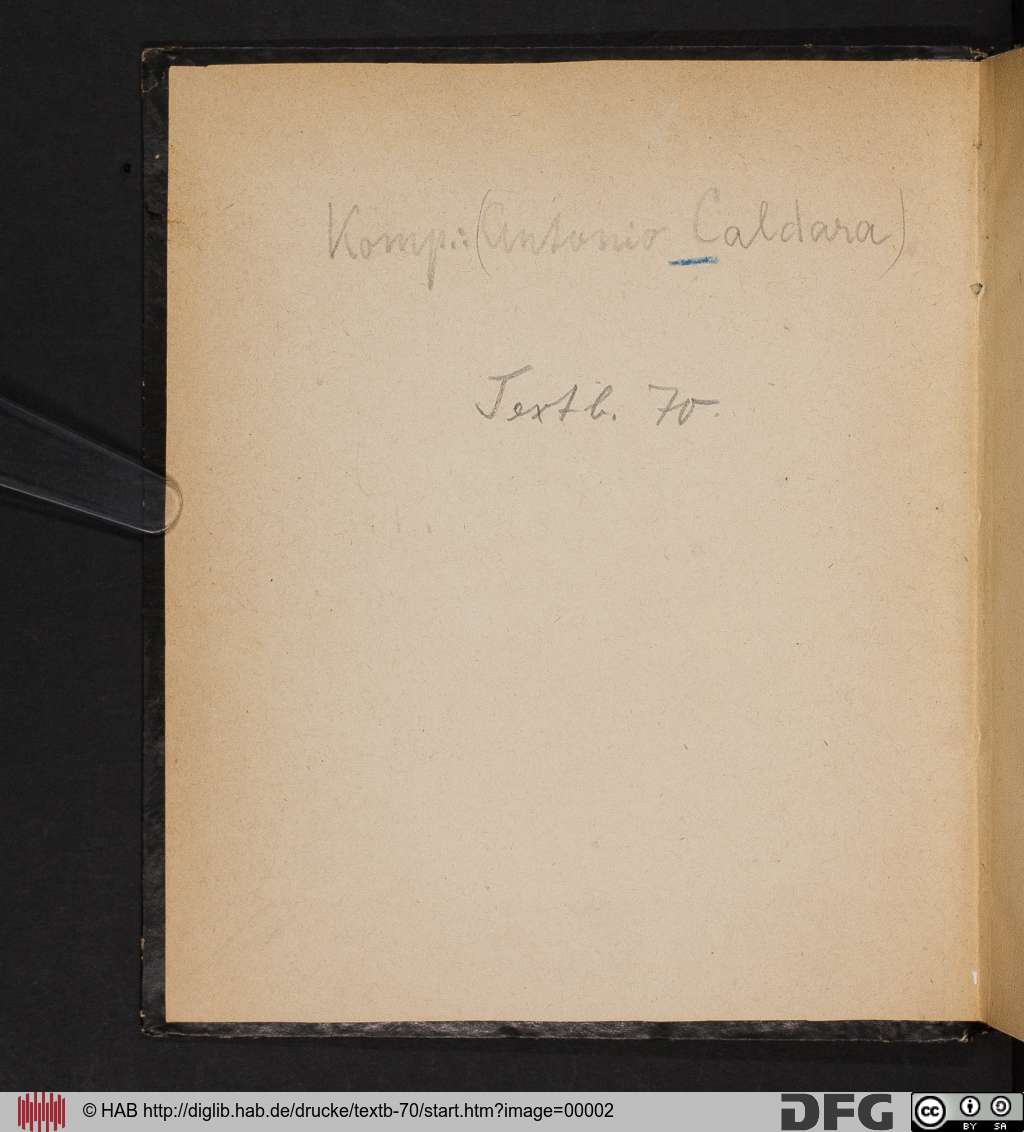 Komp.: (Antonio Caldara)
Textb. 70.
© HAB http://diglib.hab.de/drucke/textb-70/start.htm?image=00002
DFG
cc BY SA